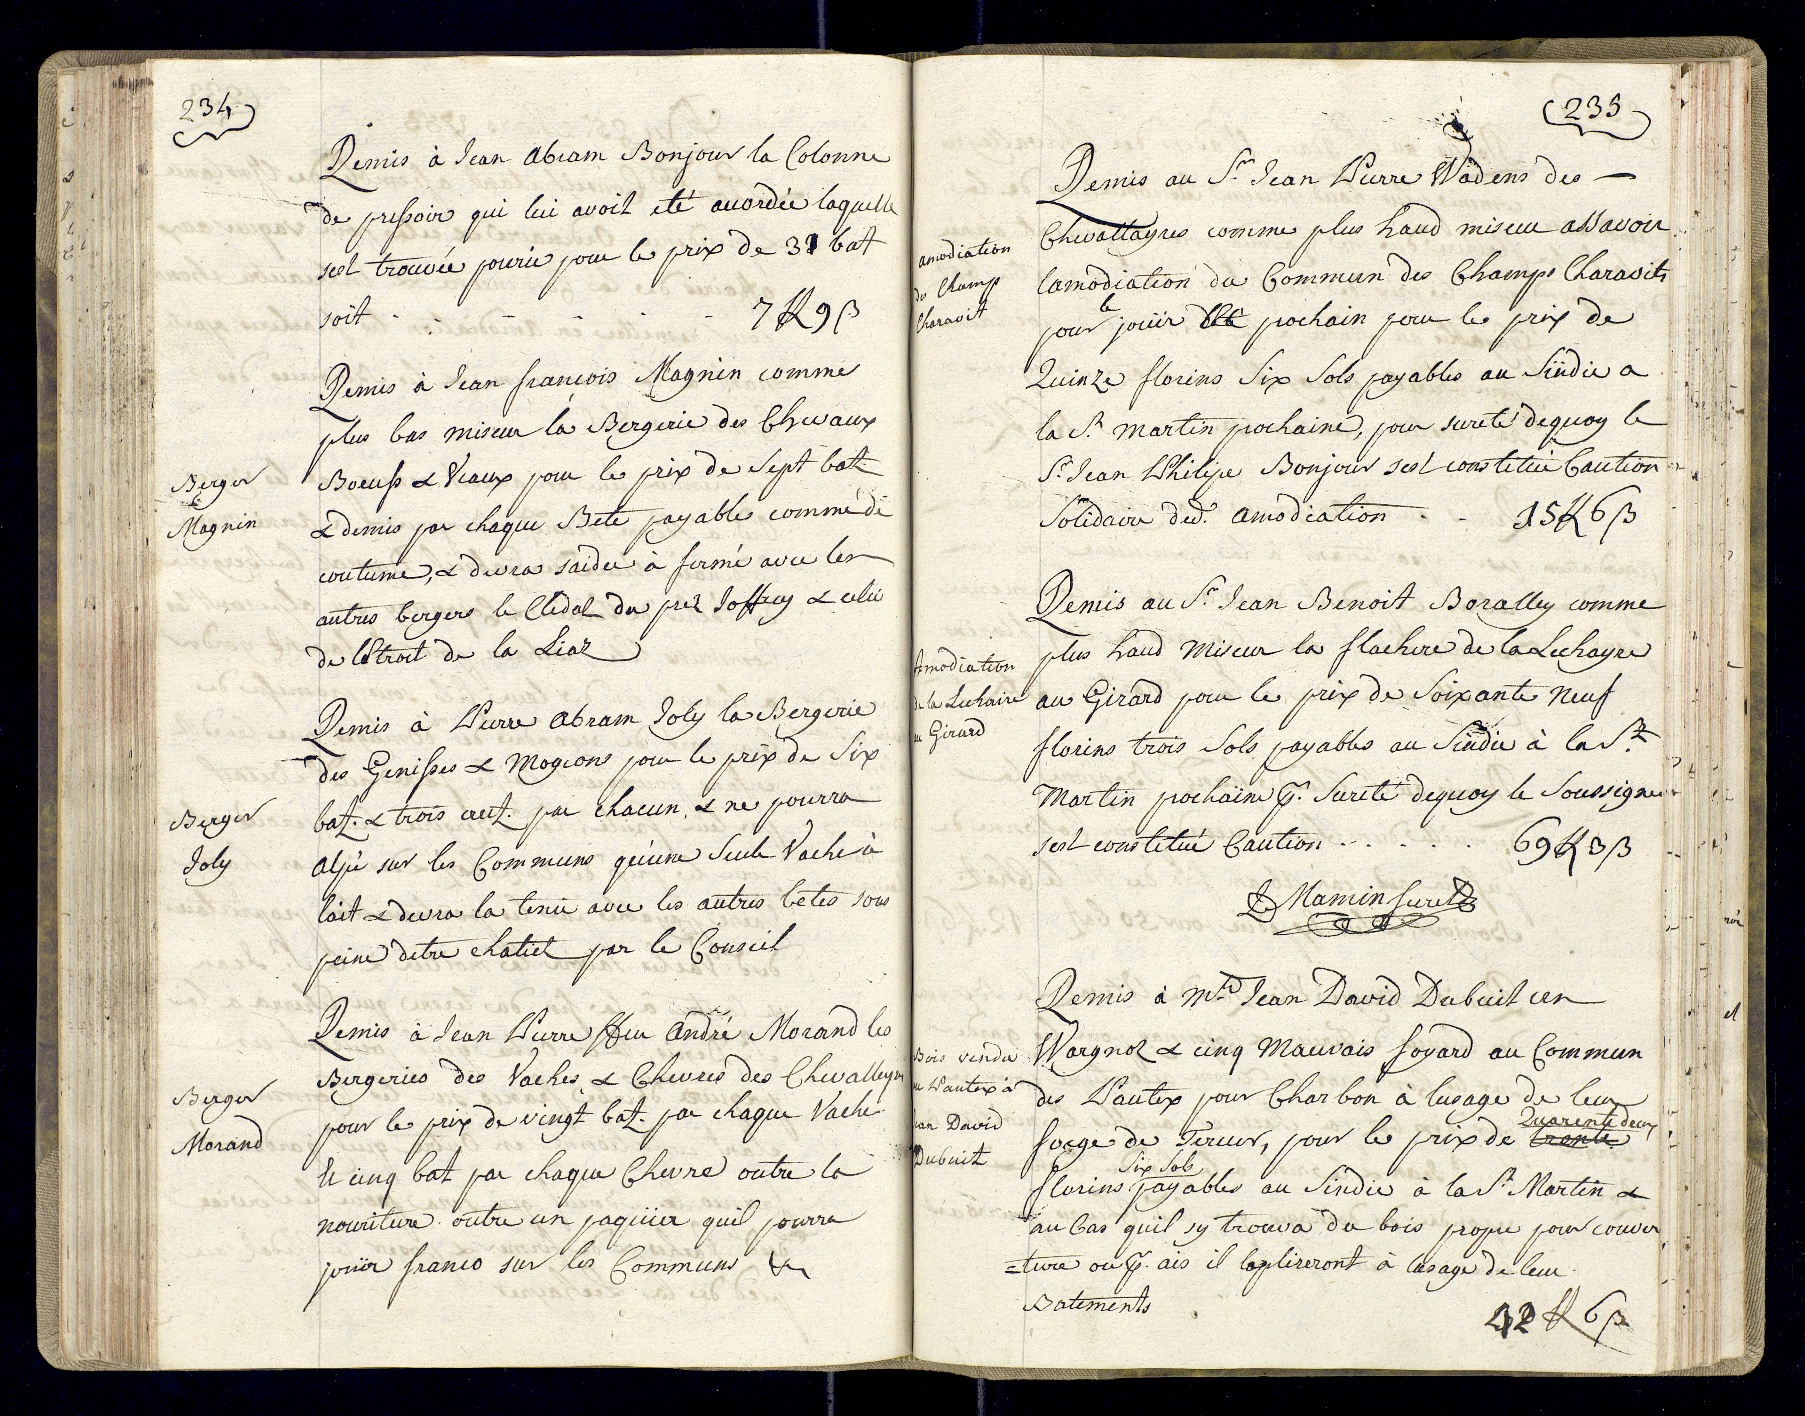 234
Remis à Jean Abram Bonjour la Colonne
de pressoir qui lui avoit eté accordée laquelle
sest trouvée pourie pour le prix de 31 bat
soit - - - - - - 7 ff 9 ß
Remis à Jean francois Magnin comme
plus bas miseur la Bergerie des Chevaux
Boeufs & Veaux pour le prix de Sept bat.
Berger
Magnin
& demis par chaque Bete payable comme de
coutume, & devra saider à fermé avec les
autres bergers le Cledal du prez Joffrey & celui
de lEtroit de la Liaz
Remis à Pierre Abram Joly la Bergerie
des Genisses & Mogeons pour le prix de Six
Berger
Joly
bat. & trois creutz. par chacun, & ne pourra
alpé sur les Communs qu'une Seule Vache à
lait & devra la tenir avec les autres betes sous
peine detre chatiet par le Conseil
Remis à Jean Pierre ffeu André Morand les
Bergeries des Vaches & Chevres des Chevalleyres
Berger
Morand
pour le prix de vingt bat. par chaque Vache
& cinq bat par chaque Chevre outre la
nouriture outre un paquier quil pourra
jouir franco sur les Communs
235
Remis au Sr. Jean Pierre Wadens des —
Chevallayres comme plus haud miseur assavoir
amodiation
des Champs
Charavit
lamodiation du Commun des Champs Charavits
pour le jouir prochain pour le prix de
Quinze florins Six Sols payables au Sindic a
la St. martin prochaine, pour sureté dequoy le
Sr. Jean Philipe Bonjour sest constitué Caution
Solidaire ded. amodiation . . 15 ff 6 ß
Remis au Sr. Jean Benoit Boralley comme
plus haud Miseur la flachere de la Lechayre
Amodiation
de la Lechaire
au Girard
au Girard pour le prix de Soixante Neuf
florins trois Sols payables au Sindic à la St.
Martin prochaine pr. Sureté dequoy le Soussigné
sest constitué Caution . . . . . 69 ff 3 ß
Mamin
Remis à mtre Jean David Dubuit un
Bois vendu
au Pautex à
Jean David
Dubuit
Wargnoz & cinq Mauvais foyard au Commun
des Pautex pour Charbon à lusage de leur
forge de Tercier, pour le prix de trente Quarente deux
florins Six Sols payables au Sindic à la St. Martin &
au Cas quil sy trouva du bois propre pour couver
=ture ou pr. ais il lapliréront à lusage de leur
Batements
42 ff 6 ß